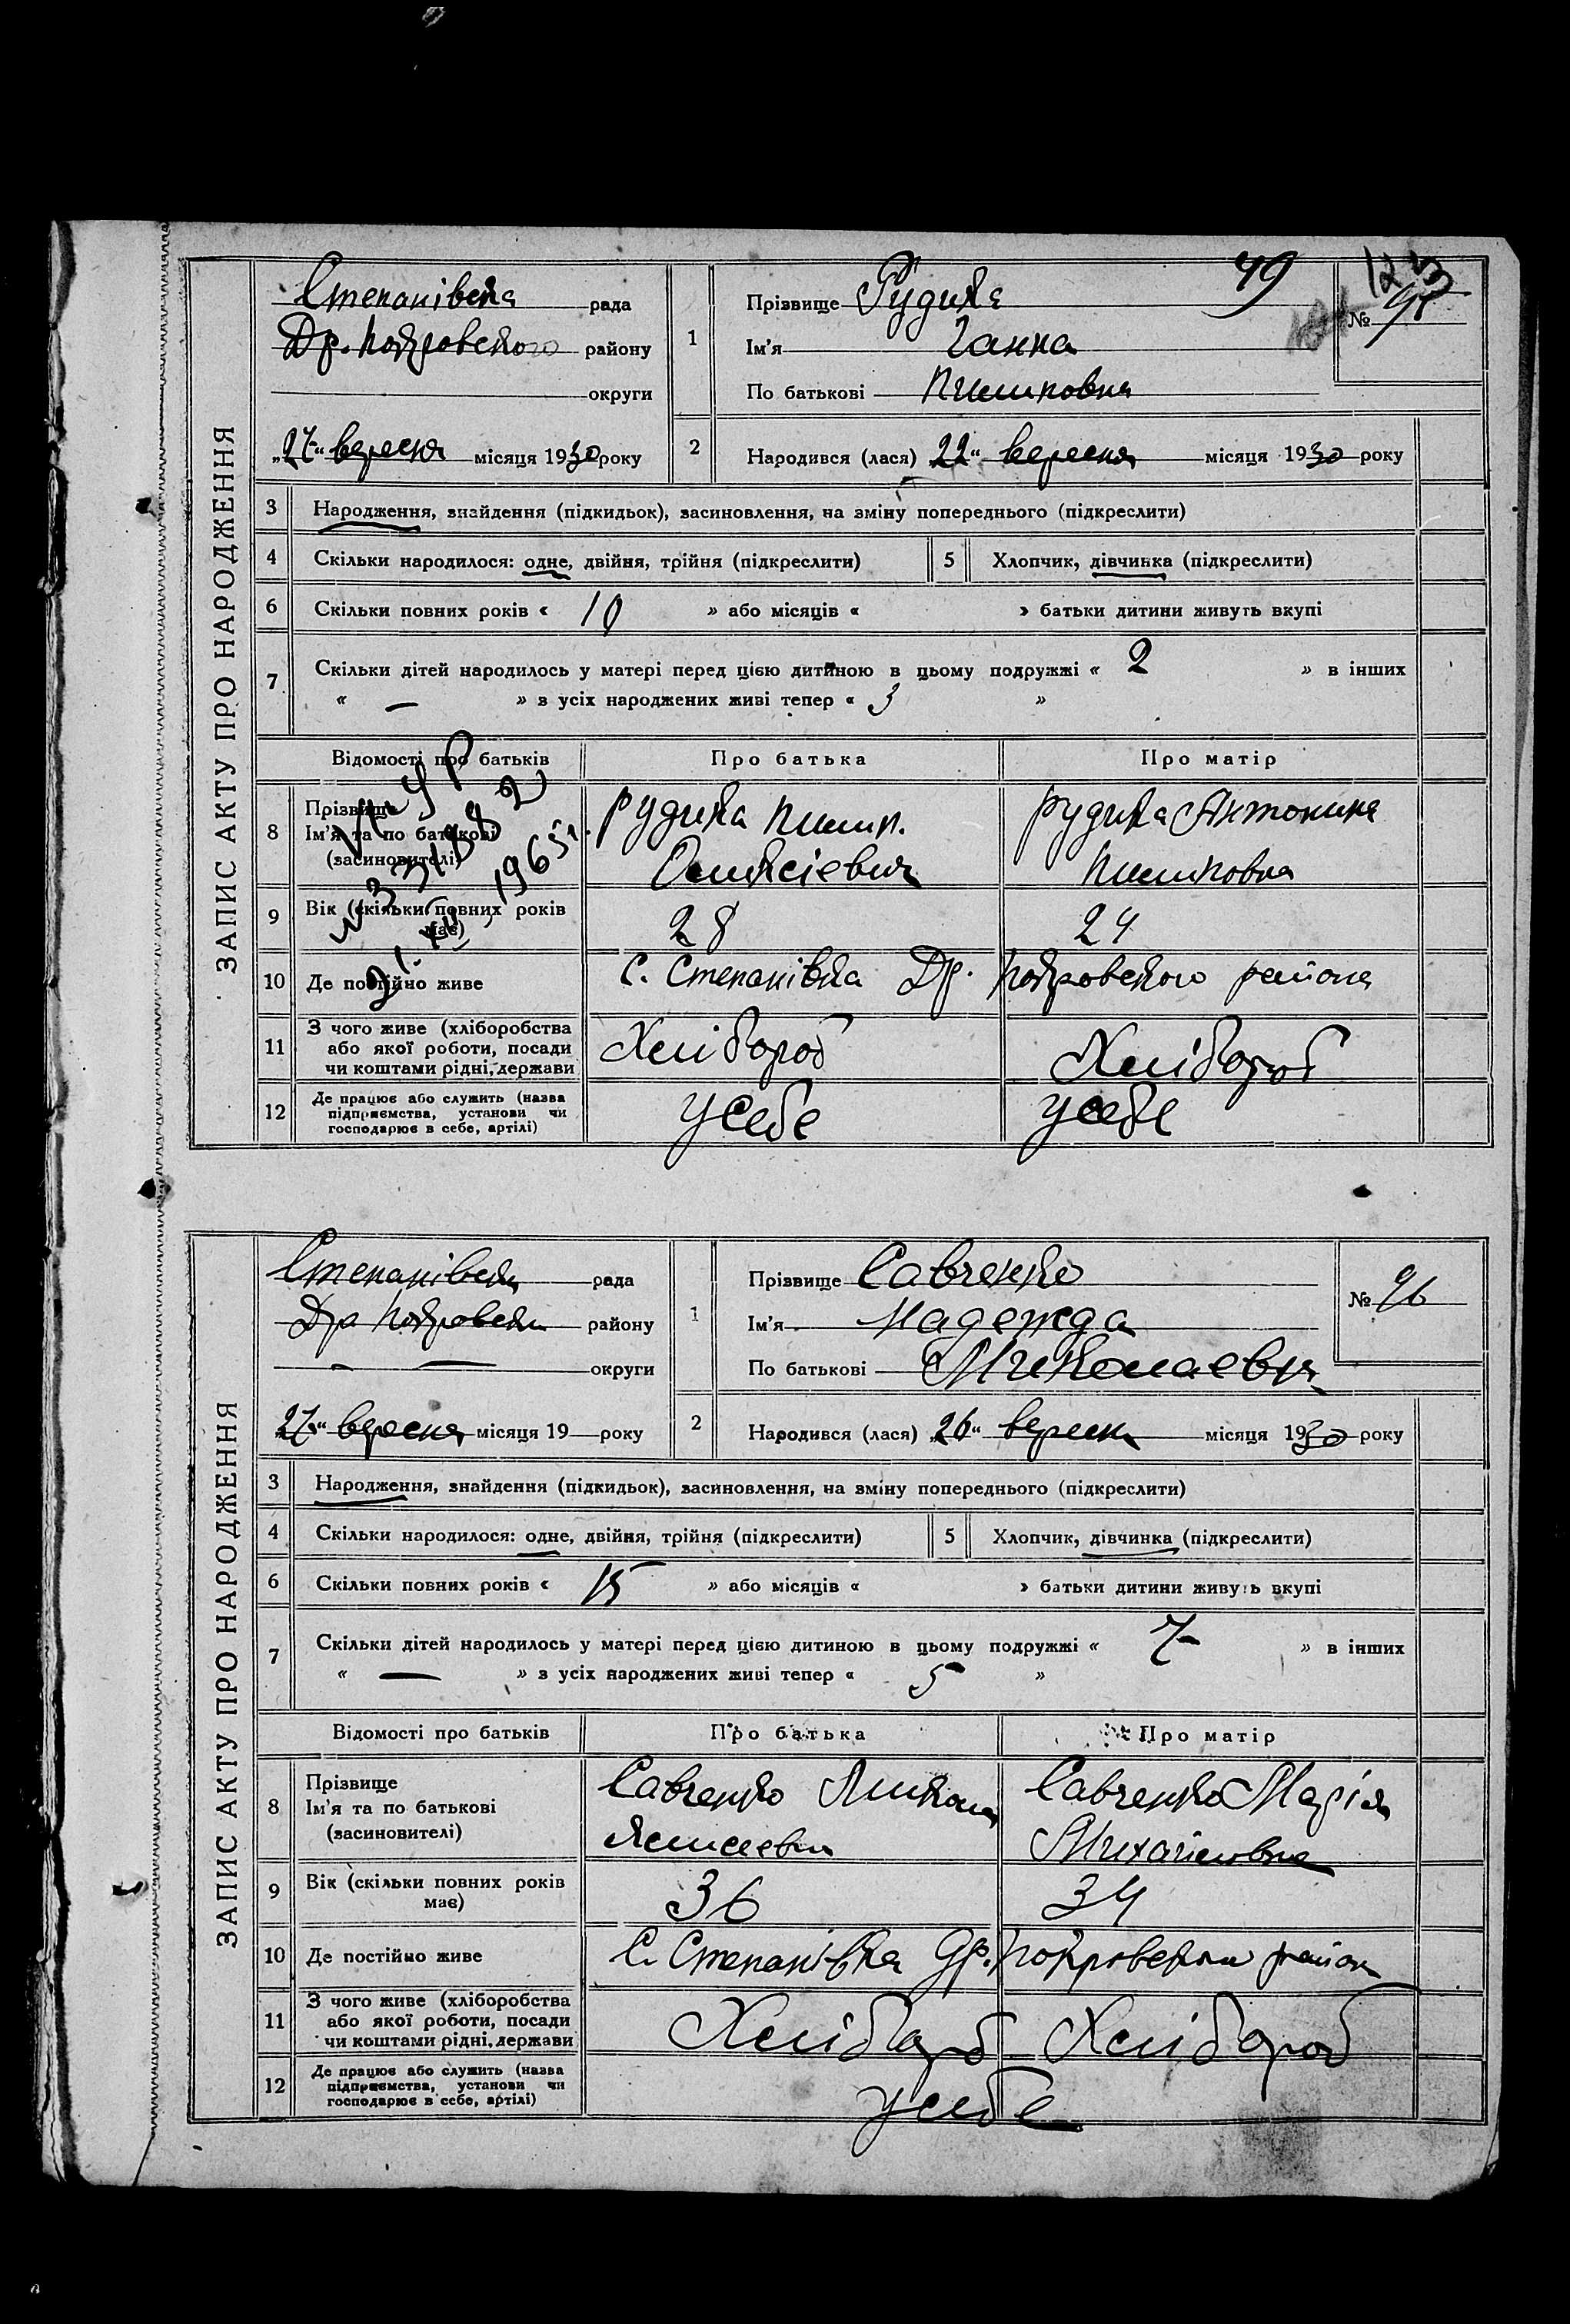 ЗАПИС АКТУ ПРО НАРОДЖЕННЯ
Степанівка рада
Др. Покровского району
округи
„27“ вересня місяця 1930 року
1
Прізвище Рудика
Ім'я Ганна
По батькові Пилиповна
49
123
№ 95
2
Народився (лася) „22“ вересня місяця 1930 року
3 Народження, знайдення (підкидьок), засиновлення, на зміну попереднього (підкреслити)
4 Скільки народилося: одне, двійня, трійня (підкреслити) 5 Хлопчик, дівчинка (підкреслити)
6 Скільки повних років « 10 » або місяців « » батьки дитини живуть вкупі
7 Скільки дітей народилось у матері перед цією дитиною в цьому подружжі « 2 » в інших
« — » з усіх народжених живі тепер « 3 »
Відомості про батьків Про батька Про матір
8 Прізвище
Ім'я та по батькові
(засиновителі)
Рудика Пилип.
Рудика Антонина
Пилиповна
1965 г.
9 Вік (скільки повних років має) 28 24
10 Де постійно живе С. Степанівка Др. Покровского района
11 З чого живе (хліборобства
або якої роботи, посади
чи коштами рідні, держави
Хлібороб Хлібороб
12 Де працює або служить (назва
підприємства, установи чи
господарює в себе, артілі)
у себе у себе
ЗАПИС АКТУ ПРО НАРОДЖЕННЯ
Степанівка рада
Др Покровськ району
— — округи
„27“ вересня місяця 19— року
1
Прізвище Савченко
Ім'я Надежда
По батькові Миколаевна
№ 96
2
Народився (лася) „26“ вересня місяця 1930 року
3 Народження, знайдення (підкидьок), засиновлення, на зміну попереднього (підкреслити)
4 Скільки народилося: одне, двійня, трійня (підкреслити) 5 Хлопчик, дівчинка (підкреслити)
6 Скільки повних років « 15 » або місяців « » батьки дитини живуть вкупі
7 Скільки дітей народилось у матері перед цією дитиною в цьому подружжі « 7 » в інших
« — » з усіх народжених живі тепер « 5 »
Відомості про батьків Про батька Про матір
8 Прізвище
Ім'я та по батькові
(засиновителі)
Савченко Микола
Савченко Марія
Михайловна
9 Вік (скільки повних років має) 36 34
10 Де постійно живе С. Степанівка Др. Покровськи район
11 З чого живе (хліборобства
або якої роботи, посади
чи коштами рідні, держави
Хлібороб Хлібороб
12 Де працює або служить (назва
підприємства, установи чи
господарює в себе, артілі)
у себе